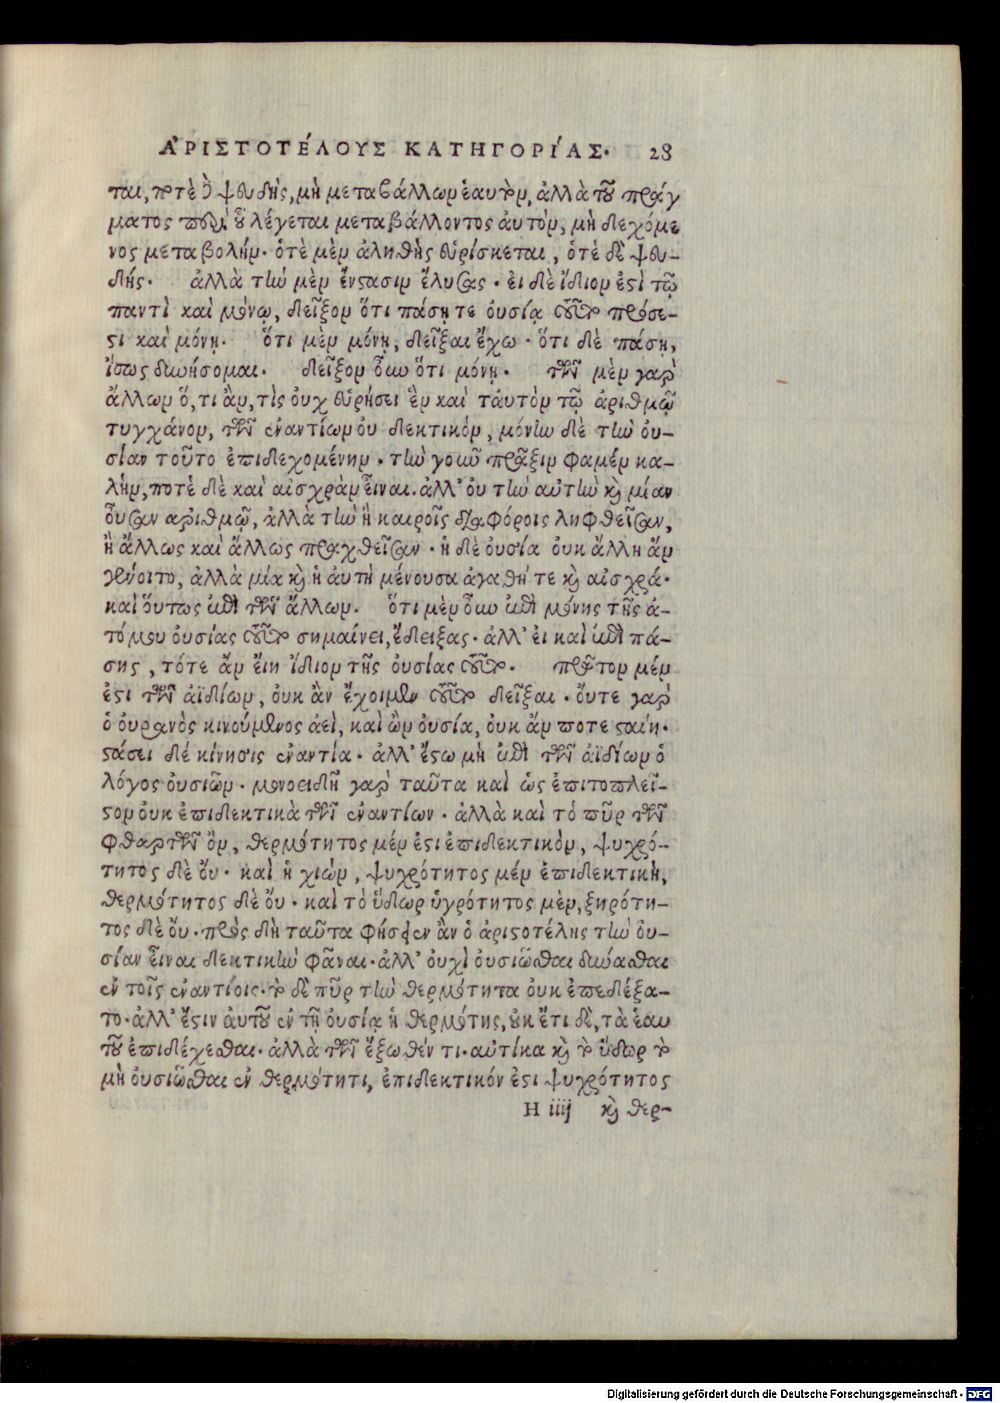 ἈΡΙΣΤΟΤΈΛΟΥΣ ΚΑΤΗΓΟΡΊΑΣ. 28
ται, ποτὲ δὲ ψευδὴς, μὴ μεταβάλλων ἑαυτὸν, ἀλλὰ τοῦ πράγ
ματος περὶ οὗ λέγεται μεταβάλλοντος ἀυτὸν, μὴ δεχόμε
νος μεταβολήν. ὁτὲ μὲν ἀληθὴς εὑρίσκεται, ὁτὲ δὲ ψευ-
δής. ἀλλὰ τὴν μὲν ἔνστασιν ἔλυσας. ἐι δὲ ἴδιον ἐστὶ τῷ
παντὶ καὶ μόνῳ, δεῖξον ὅτι πάσῃ τε ὀυσίᾳ τοῦτο πρόσε-
στι καὶ μόνῃ. ὅτι μὲν μόνῃ, δεῖξαι ἔχω. ὅτι δὲ πάσῃ,
ἴσως δυνήσομαι. δεῖξον οὖν ὅτι μόνῃ. τῶν μὲν γὰρ
ἄλλων ὅ, τι ἂν, τὶς ὀυχ εὑρήσει ἓν καὶ τἀυτὸν τῷ ἀριθμῷ
τυγχάνον, τῶν ἐναντίων ὀυ δεκτικόν, μόνην δὲ τὴν ὀυ-
σίαν τοῦτο ἐπιδεχομένην. τὴν γοῦν πρᾶξιν φαμέν κα-
λὴν, ποτὲ δὲ καὶ αἰσχρὰν εἶναι. ἀλλ' ὀυ τὴν αὐτὴν καὶ μίαν
οὖσαν ἀριθμῷ, ἀλλὰ τὴν ἢ καιροῖς διαφόροις ληφθεῖσαν,
ἢ ἄλλως καὶ ἄλλως πραχθεῖσαν. ἡ δὲ ὀυσία ὀυκ ἄλλη ἂν
γένοιτο, ἀλλὰ μία καὶ ἡ ἀυτὴ μένουσα ἀγαθή τε καὶ αἰσχρά.
καὶ ὅυτως ἐπὶ τῶν ἄλλων. ὅτι μὲν οὖν ἐπὶ μόνης τῆς ἀ-
τόμου ὀυσίας τοῦτο σημαίνει, ἔδειξας. ἀλλ' ἐι καὶ ἐπὶ πά-
σης, τότε ἂν ἔιη ἴδιον τῆς ὀυσίας τοῦτο. πρῶτον μὲν
ἐπὶ τῶν ἀϊδίων, ὀυκ ἂν ἔχοιμεν τοῦτο δεῖξαι. ὄυτε γὰρ
ὁ ὀυρανὸς κινούμενος ἀεὶ, καὶ ὢν ὀυσία, ὀυκ ἄν ποτε σταίη.
στάσει δὲ κίνησις ἐναντία. ἀλλ' ἔστω μὴ ἐπὶ τῶν ἀϊδίων ὁ
λόγος ὀυσιῶν. μονοειδῆ γὰρ ταῦτα καὶ ὡς ἐπιτοπλεῖ-
στον ὀυκ ἐπιδεκτικὰ τῶν ἐναντίων. ἀλλὰ καὶ τὸ πῦρ τῶν
φθαρτῶν ὂν, θερμότητος μέν ἐστι ἐπιδεκτικὸν, ψυχρό-
τητος δὲ ὄυ. καὶ ἡ χιὼν, ψυχρότητος μέν ἐπιδεκτικὴ,
θερμότητος δὲ ὄυ. καὶ τὸ ὕδωρ ὑγρότητος μὲν, ξηρότη-
τος δὲ ὀυ. πρὸς δὴ ταῦτα φήσειεν ἂν ὁ ἀριστοτέλης τὴν ὀυ-
σίαν εἶναι δεκτικὴν φᾶναι. ἀλλ' ὀυχὶ ὀυσιῶσθαι δύνασθαι
ἐν τοῖς ἐναντίοις. τὸ δὲ πῦρ τὴν θερμότητα ὀυκ ἐπεδέξα-
το. ἀλλ' ἔστιν ἀυτοῦ ἐν τῇ ὀυσίᾳ ἡ θερμότης, οὐκ ἔτι δὲ, τὰ ἑαυ
τοῦ ἐπιδέχεσθαι. ἀλλὰ τῶν ἔξωθέν τι. αὐτίκα καὶ τὸ ὕδωρ τὸ
μὴ ὀυσιῶσθαι ἐν θερμότητι, ἐπιδεκτικόν ἐστι ψυχρότητος
H iiij καὶ θερ-
Digitalisierung gefördert durch die Deutsche Forschungsgemeinschaft - DFG